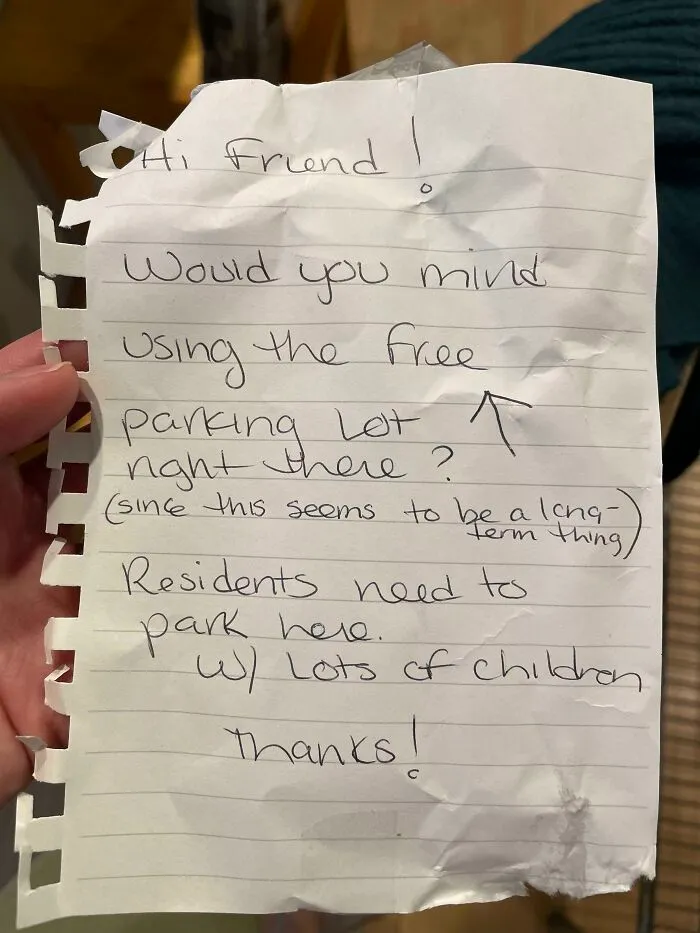 Hi Friend!
Would you mind
using the free
parking lot
right there?
(since this seems to be a long-
term thing)
Residents need to
park here.
w/ Lots of children
Thanks!